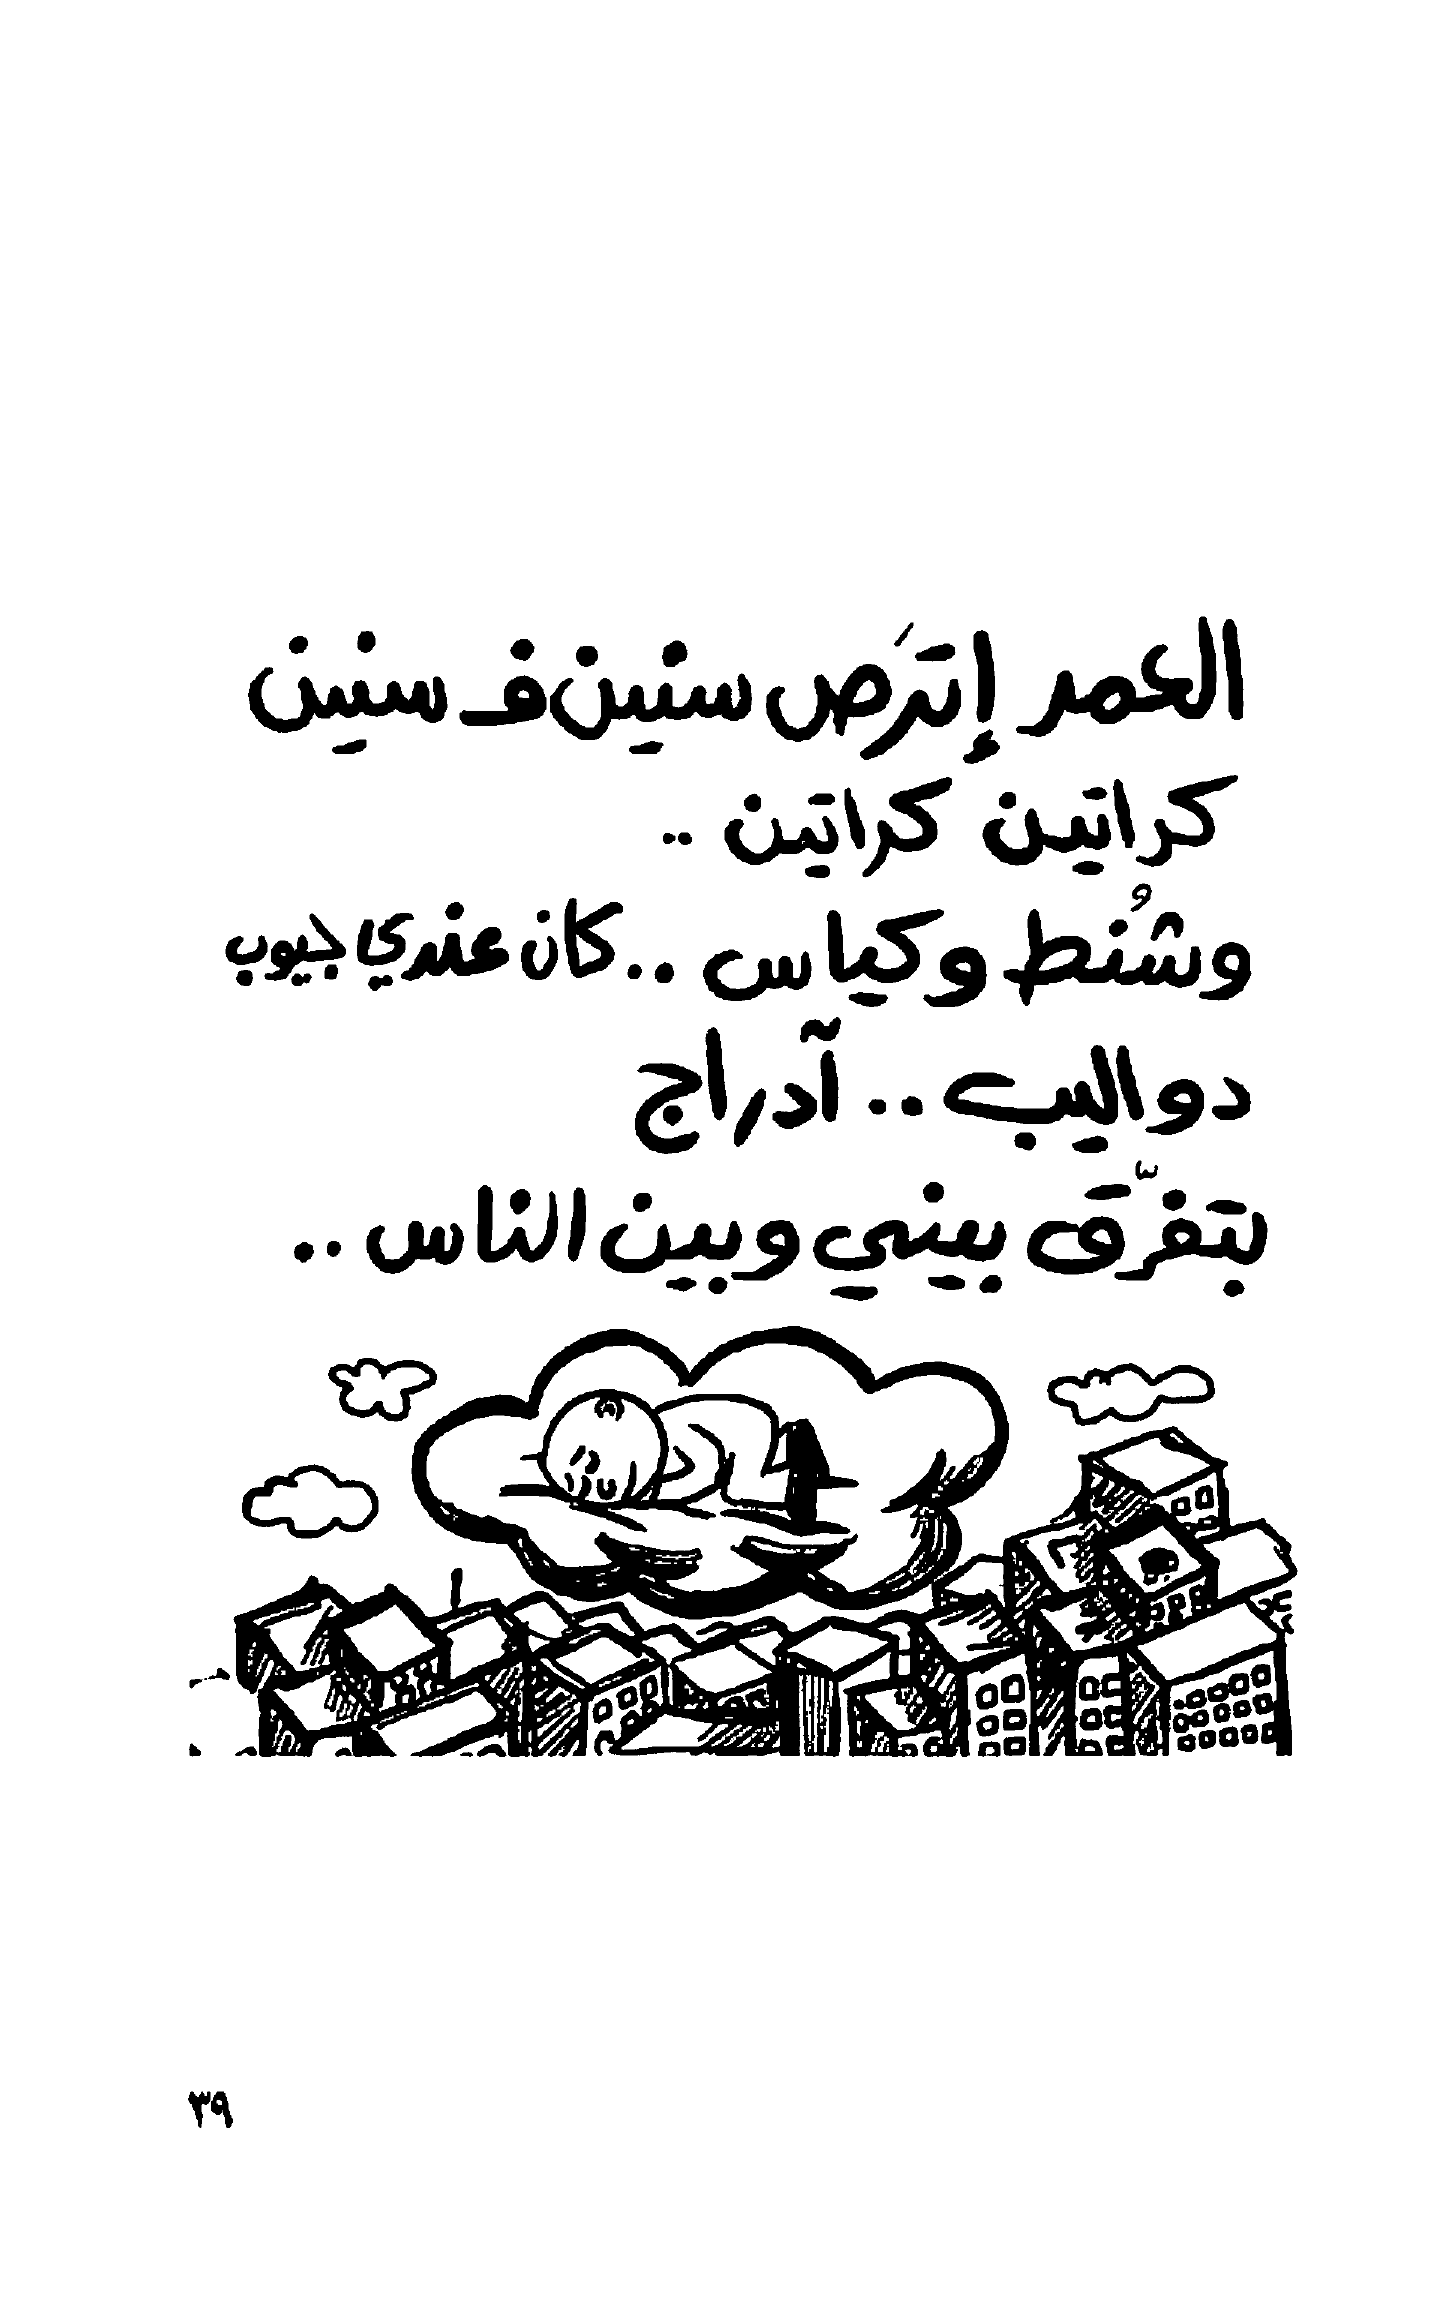 العمر إترَص سنين فـ سنين
كراتين كراتين ..
وشُنط وكياس .. كان عندي جيوب
دواليب .. آدراج
بتفرّق بيني وبين الناس ..
٣٩